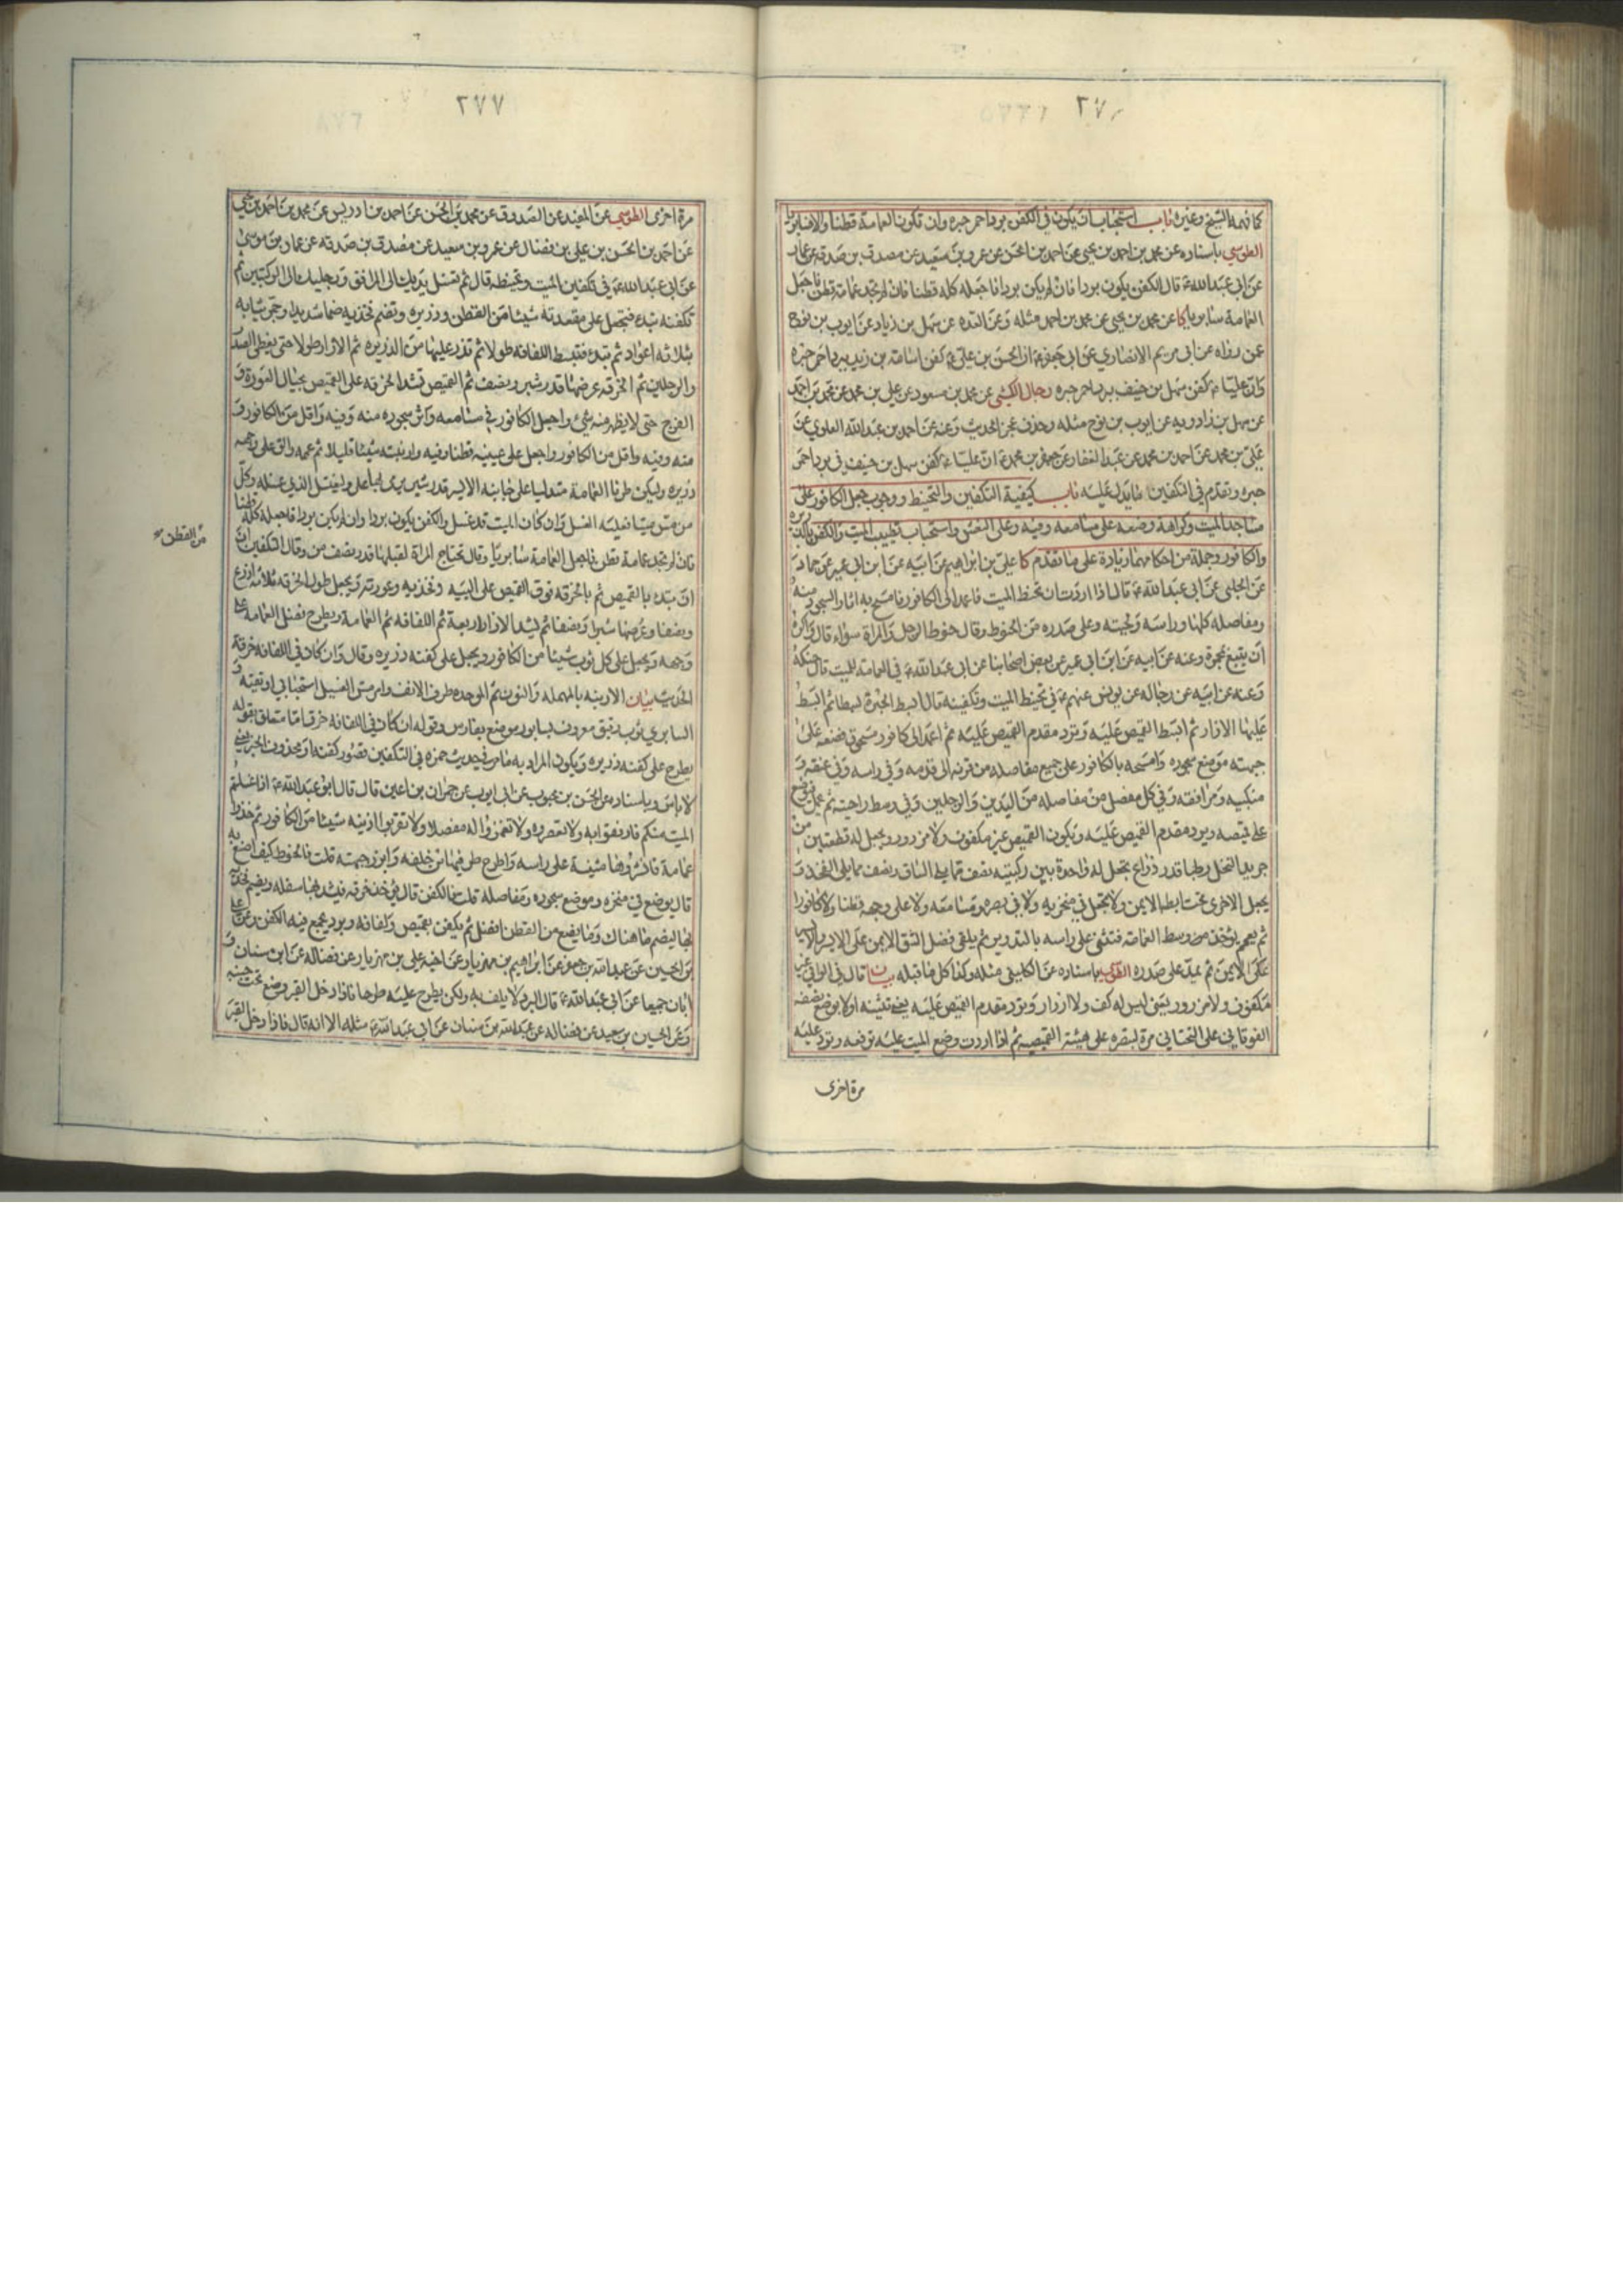 ٢٧
كما فهمه الشيخ وغيره باب استحباب ان يكون في الكفن برد احمر حبره وان تكون العمامة قطنا والا فسابريا
الطوسي باسناده عن محمد بن احمد بن يحيى عن احمد بن الحسن عن عمرو بن سعيد عن مصدق بن صدقه عن عمار
عن ابي عبد الله ع قال الكفن يكون بردا فان لم يكن بردا فاجعله كله قطنا فان لم تجد عمامة قطن فاجعل
العمامة سابريا كا عن محمد بن يحيى عن محمد بن احمد مثله وعن العده عن سهل بن زياد عن ايوب بن نوح
عن رواه عن ابي مريم الانصاري عن ابي جعفر ع ان الحسن بن علي ع كفن اسامة بن زيد ببرد احمر حبره
وان عليا ع كفن سهل بن حنيف ببرد احمر حبره رجال الكشي عن محمد بن مسعود عن علي بن محمد عن محمد بن احمد
عن سهل بن زادويه عن ايوب بن نوح مثله وحذف عجز الحديث وعنه عن احمد بن عبد الله العلوي عن
علي بن محمد عن احمد بن محمد عن عبد الغفار عن جعفر بن محمد ع ان عليا ع كفن سهل بن حنيف في برد احمر
حبره وتقدم في التكفين ما يدل عليه باب كيفية التكفين والتحنيط ووجوب جعل الكافور على
مساجد الميت وكراهة وضعه على مسامعه وفيه وعلى النعش واستحباب تطييب الميت والكفن بالذريره
والكافور وجملة من احكامهما زيادة على ما تقدم كا علي بن ابراهيم عن ابيه عن ابن ابي عمير عن حماد
عن الحلبي عن ابي عبد الله ع قال اذا اردت ان تحنط الميت فاعمد الى الكافور فامسح به اثار السجود منه
ومفاصله كلها وراسه ولحيته وعلى صدره من الحنوط وقال حنوط الرجل والمراة سواء قال واكره
ان يتبع بمجمرة وعنه عن ابيه عن ابن ابي عمير عن بعض اصحابنا عن ابي عبد الله ع في العمامة للميت قال حنكه
وعنه عن ابيه عن رجاله عن يونس عنهم ع في تحنيط الميت وتكفينه قال ابسط الحبرة بسطا ثم ابسط
عليها الازار ثم ابسط القميص عليه وترد مقدم القميص عليه ثم اعمد الى كافور مسحوق فضعه على
جبهته موضع سجوده وامسحه بالكافور على جميع مفاصله من قرنه الى قدمه وفي راسه وفي عنقه و
منكبيه ومرافقه وفي كل مفصل من مفاصله من اليدين والرجلين وفي وسط راحتيه ثم يحمل فيوضع
على قميصه ويرد مقدم القميص عليه ويكون القميص غير مكفوف ولا مزرور ويجعل له قطعتين من
جريد النخل رطبا قدر ذراع يجعل له واحدة بين ركبتيه نصف مما يلي الساق ونصف مما يلي الفخذ و
يجعل الاخرى تحت ابطه الايمن ولا تجعل في منخريه ولا في بصره ومسامعه ولا على وجهه قطنا ولا كافورا
ثم يعمم يؤخذ من وسط العمامة فتثنى على راسه بالتدوير ثم يلقى فضل الشق الايمن على الايسر والايسر
على الايمن ثم يمد على صدره الطوسي باسناده عن الكليني مثله وكذا كل ما قبله بيان قال في الوافي غير
مكفوف ولا مزرور يعني ليس له كف ولا ازرار وترد مقدم القميص عليه يعني تثنيه اولا بوضع نصفه
الفوقاني على التحتاني مرة لتبصره على هيئة القميص ثم اذا اردت وضع الميت عليه ترفعه وترد عليه
مرة اخرى
٢٧٧
مرة اخرى الطوسي عن المفيد عن الصدوق عن محمد بن الحسن عن احمد بن ادريس عن محمد بن احمد بن يحيى
عن احمد بن الحسن بن علي بن فضال عن عمرو بن سعيد عن مصدق بن صدقه عن عمار بن موسى
عن ابي عبد الله ع في تكفين الميت وتحنيطه قال ثم تغسل يديك الى المرافق ورجليك الى الركبتين ثم
تكفنه تبدء فتجعل على مقعدته شيئا من القطن وذريره وتضم فخذيه ضما شديدا وجمر ثيابه
بثلاثه اعواد ثم تبدء فتبسط اللفافه طولا ثم تذر عليها من الذريره ثم الازار طولا حتى يغطي الصدر
والرجلين ثم الخرقه عرضها قدر شبر ونصف ثم القميص تشد الخرقه على القميص بحيال العورة و
الفرج حتى لا يظهر منه شيء واجعل الكافور في مسامعه واثر سجوده منه وفيه واقل من الكافور و
منه وفيه واقل من الكافور واجعل على عينيه قطنا وفيه وارنبته شيئا قليلا ثم عممه والق على وجهه
ذريره وليكن طرفا العمامة متدليا على جانبه الايسر قدر شبر يرمى بها على وليغتسل الذي غسله وكل
من مس ميتا فعليه الغسل وان كان الميت قد غسل والكفن يكون بردا وان لم يكن بردا فاجعله كله قطنا
فان لم تجد عمامة قطن فاجعل العمامة سابريا وقال تحتاج المراة لقبلها قدر نصف من وقال التكفين ان
من القطن
ان تبدء بالقميص ثم بالخرقه فوق القميص على الييه وفخذيه وعورته ويجعل طول الخرقه ثلاثه اذرع
ونصفا وعرضها شبرا ونصفا ثم يشد الازار اربعة ثم اللفافه ثم العمامة ويطرح فضل العمامة على
وجهه ويجعل على كل ثوب شيئا من الكافور ويجعل على كفنه ذريره وقال وان كان في اللفافه خرق
الحديث بيان الارنبه بالمهمله والنون ثم الموحده طرف الانف وامر مس الغسيل استحبابي او تقيه و
السابري ثوب رقيق معروف بسابور موضع بفارس وقوله ان كان في اللفافه خرق اما متعلق بقوله
يطرح على كفنه ذريره ويكون المراد به ما مر في حديث حمزه في التكفين تصور كفنه او محذوف الخبر يعني
لا باس وباسناده عن الحسن بن محبوب عن ابي ايوب عن حمران بن اعين قال قال ابو عبد الله ع اذا غسلتم
الميت منكم فارفقوا به ولا تعصروه ولا تغمزوا له مفصلا ولا تقربوا اذنيه شيئا من الكافور ثم خذوا
عمامة فانشروها مثنية على راسه واطرح طرفيها من خلفه وابرز جبهته قلت فالحنوط كيف اصنع به
قال يوضع في منخره وموضع سجوده ومفاصله قلت فالكفن قال تؤخذ خرقه فيشد بها سفله ويضم فخذيه
بها ليضم ما هناك وما يصنع من القطن افضل ثم يكفن بقميص ولفافه وبرد يجمع فيه الكفن وعن علي
بن الحسين عن عبد الله بن جعفر عن ابراهيم بن مهزيار عن اخيه علي بن مهزيار عن فضاله عن ابن سنان و
ابان جميعا عن ابي عبد الله ع قال البرد لا يلف به ولكن يطرح عليه طرحا فاذا دخل القبر وضع تحت جنبه
وعن الحسين بن سعيد عن فضاله عن عبد الله بن سنان عن ابي عبد الله ع مثله الا انه قال فاذا دخل القبر